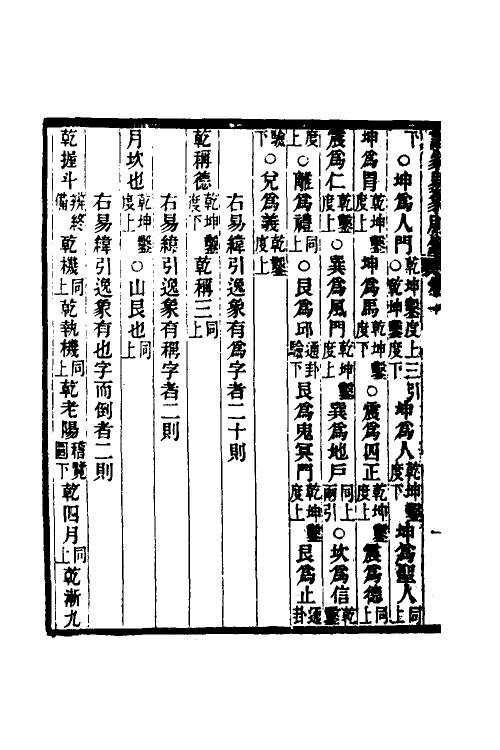 下○坤為人門乾坤鑿度上三引○乾坤鑿度下坤為人乾坤鑿度下坤為聖人同上
坤為胃乾坤鑿度上坤為馬乾坤鑿度下○震為四正乾坤鑿度上震為德同上
震為仁乾鑿度上○巽為風門乾坤鑿度上巽為地戶同上兩引○坎為信乾鑿
度上○離為禮同上○艮為邱通卦驗下艮為鬼冥門乾坤鑿度上艮為止通卦
驗下○兌為義乾鑿度上
右易緯引逸象有為字者二十則
乾稱德乾坤鑿度下乾稱三同上
右易緯引逸象有稱字者二則
月坎也乾坤鑿度上○山艮也同上
右易緯引逸象有也字而倒者二則
乾握斗辨終備乾機同上乾執機同上乾老陽稽覽圖下乾四月同上乾漸九